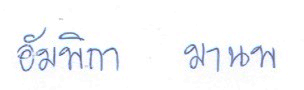 อัมพิกา มานพ